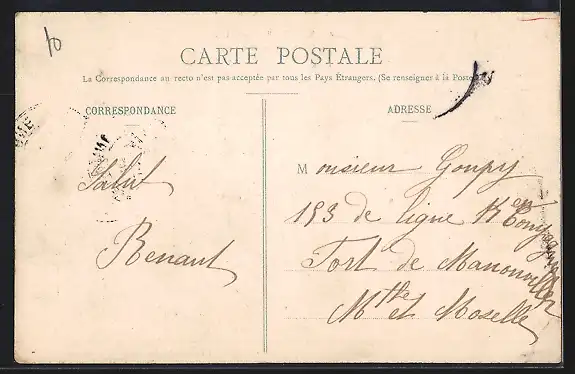 10
CARTE POSTALE
La Correspondance au recto n'est pas acceptée par tous les Pays Étrangers. (Se renseigner à la Poste)
CORRESPONDANCE
ADRESSE
Salut
Renaut
Monsieur Goupy
153 de ligne Compagnie
Fort de Manonviller
Mthe et Moselle